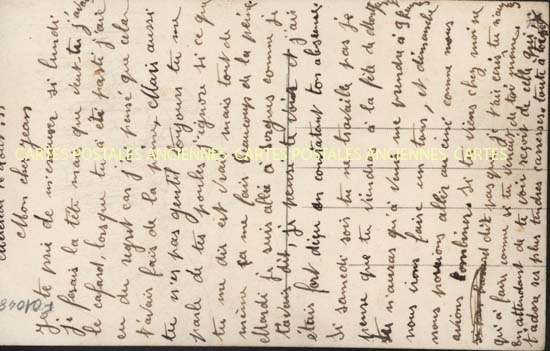 Mon cher Jean
Je te prie de m'excuser si lundi
je faisais la tête mais que veux-tu j'avais
le cafard, lorsque tu as été parti j'ai
eu du regret car j'ai pensé que cela
t'avait fait de la peine. Mais aussi
tu n'es pas gentil toujours tu me
parle de tes poules, j'ignore si ce que
tu me dis est vrai mais tout de
même ça me fais beaucoup de la peine
Mardi je suis allée à Lorgues comme je
t'avais dit, je pensais te voir et j'ai
étais fort déçu en constatant ton absence
Si samedi soir tu ne travaille pas je
pense que tu viendras à la fête de
tu n'auras qu'à venir me prendre à 9h
nous irons faire un tour, et dimanche
nous pouvons aller au ciné comme nous
avions combiner. Si tu viens chez moi ne
dit pas que je t'ai écris tu n'auras
qu'à faire comme si tu venais de toi même.
En attendant de te voir reçoit de celle qui
t'adore ses plus tendres caresses. toute à toi
CARTES POSTALES ANCIENNES CARTES POSTALES ANCIENNES CARTES